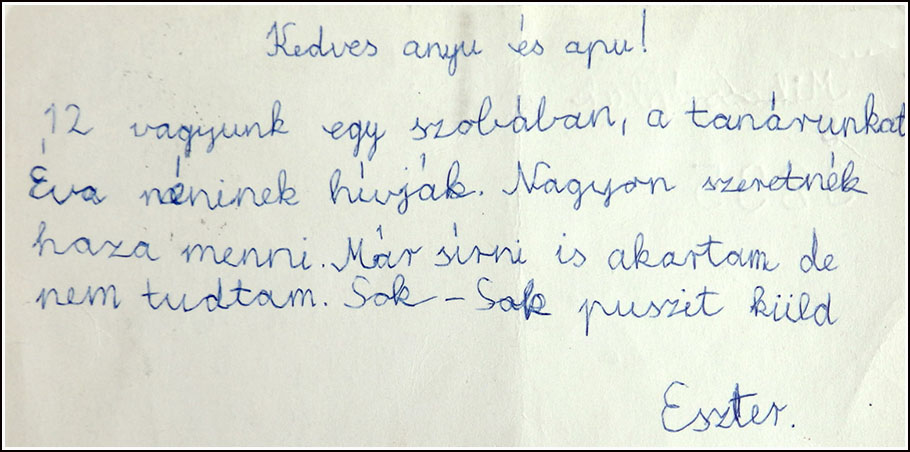 Kedves anyu és apu!
12 vagyunk egy szobában, a tanárunkat
Éva néninek hívják. Nagyon szeretnék
haza menni. Már sírni is akartam de
nem tudtam. Sok - Sok puszit küld
Eszter.